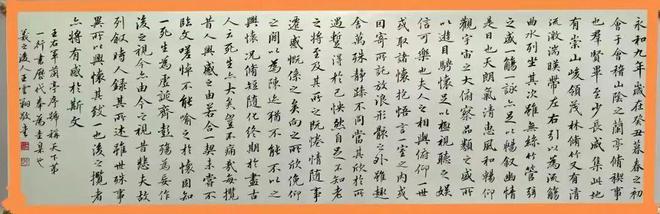 永和九年歲在癸丑暮春之初
會于會稽山陰之蘭亭脩稧事
也群賢畢至少長咸集此地
有崇山峻領茂林脩竹又有清
流激湍暎帶左右引以為流觴
曲水列坐其次雖無絲竹管弦
之盛一觴一詠亦足以暢叙幽情
是日也天朗氣清惠風和暢仰
觀宇宙之大俯察品類之盛所
以遊目騁懷足以極視聽之娛
信可樂也夫人之相與俯仰一世
或取諸懷抱悟言一室之內或
因寄所託放浪形骸之外雖趣
舍萬殊靜躁不同當其欣於所
遇蹔得於己怏然自足不知老
之將至及其所之既惓情隨事
遷感慨係之矣向之所欣俛仰
之間以為陳迹猶不能不以之
興懷況脩短隨化終期於盡古
人云死生亦大矣豈不痛哉每攬
昔人興感之由若合一契未嘗不
臨文嗟悼不能喻之於懷固知
一死生為虛誕齊彭殤為妄作
後之視今亦由今之視昔悲夫故
列叙時人錄其所述雖世殊事
異所以興懷其致一也後之攬者
亦將有感於斯文
王右軍蘭亭序號稱天下第
一行書歷代奉為圭臬也
羲之後人王雲敬書